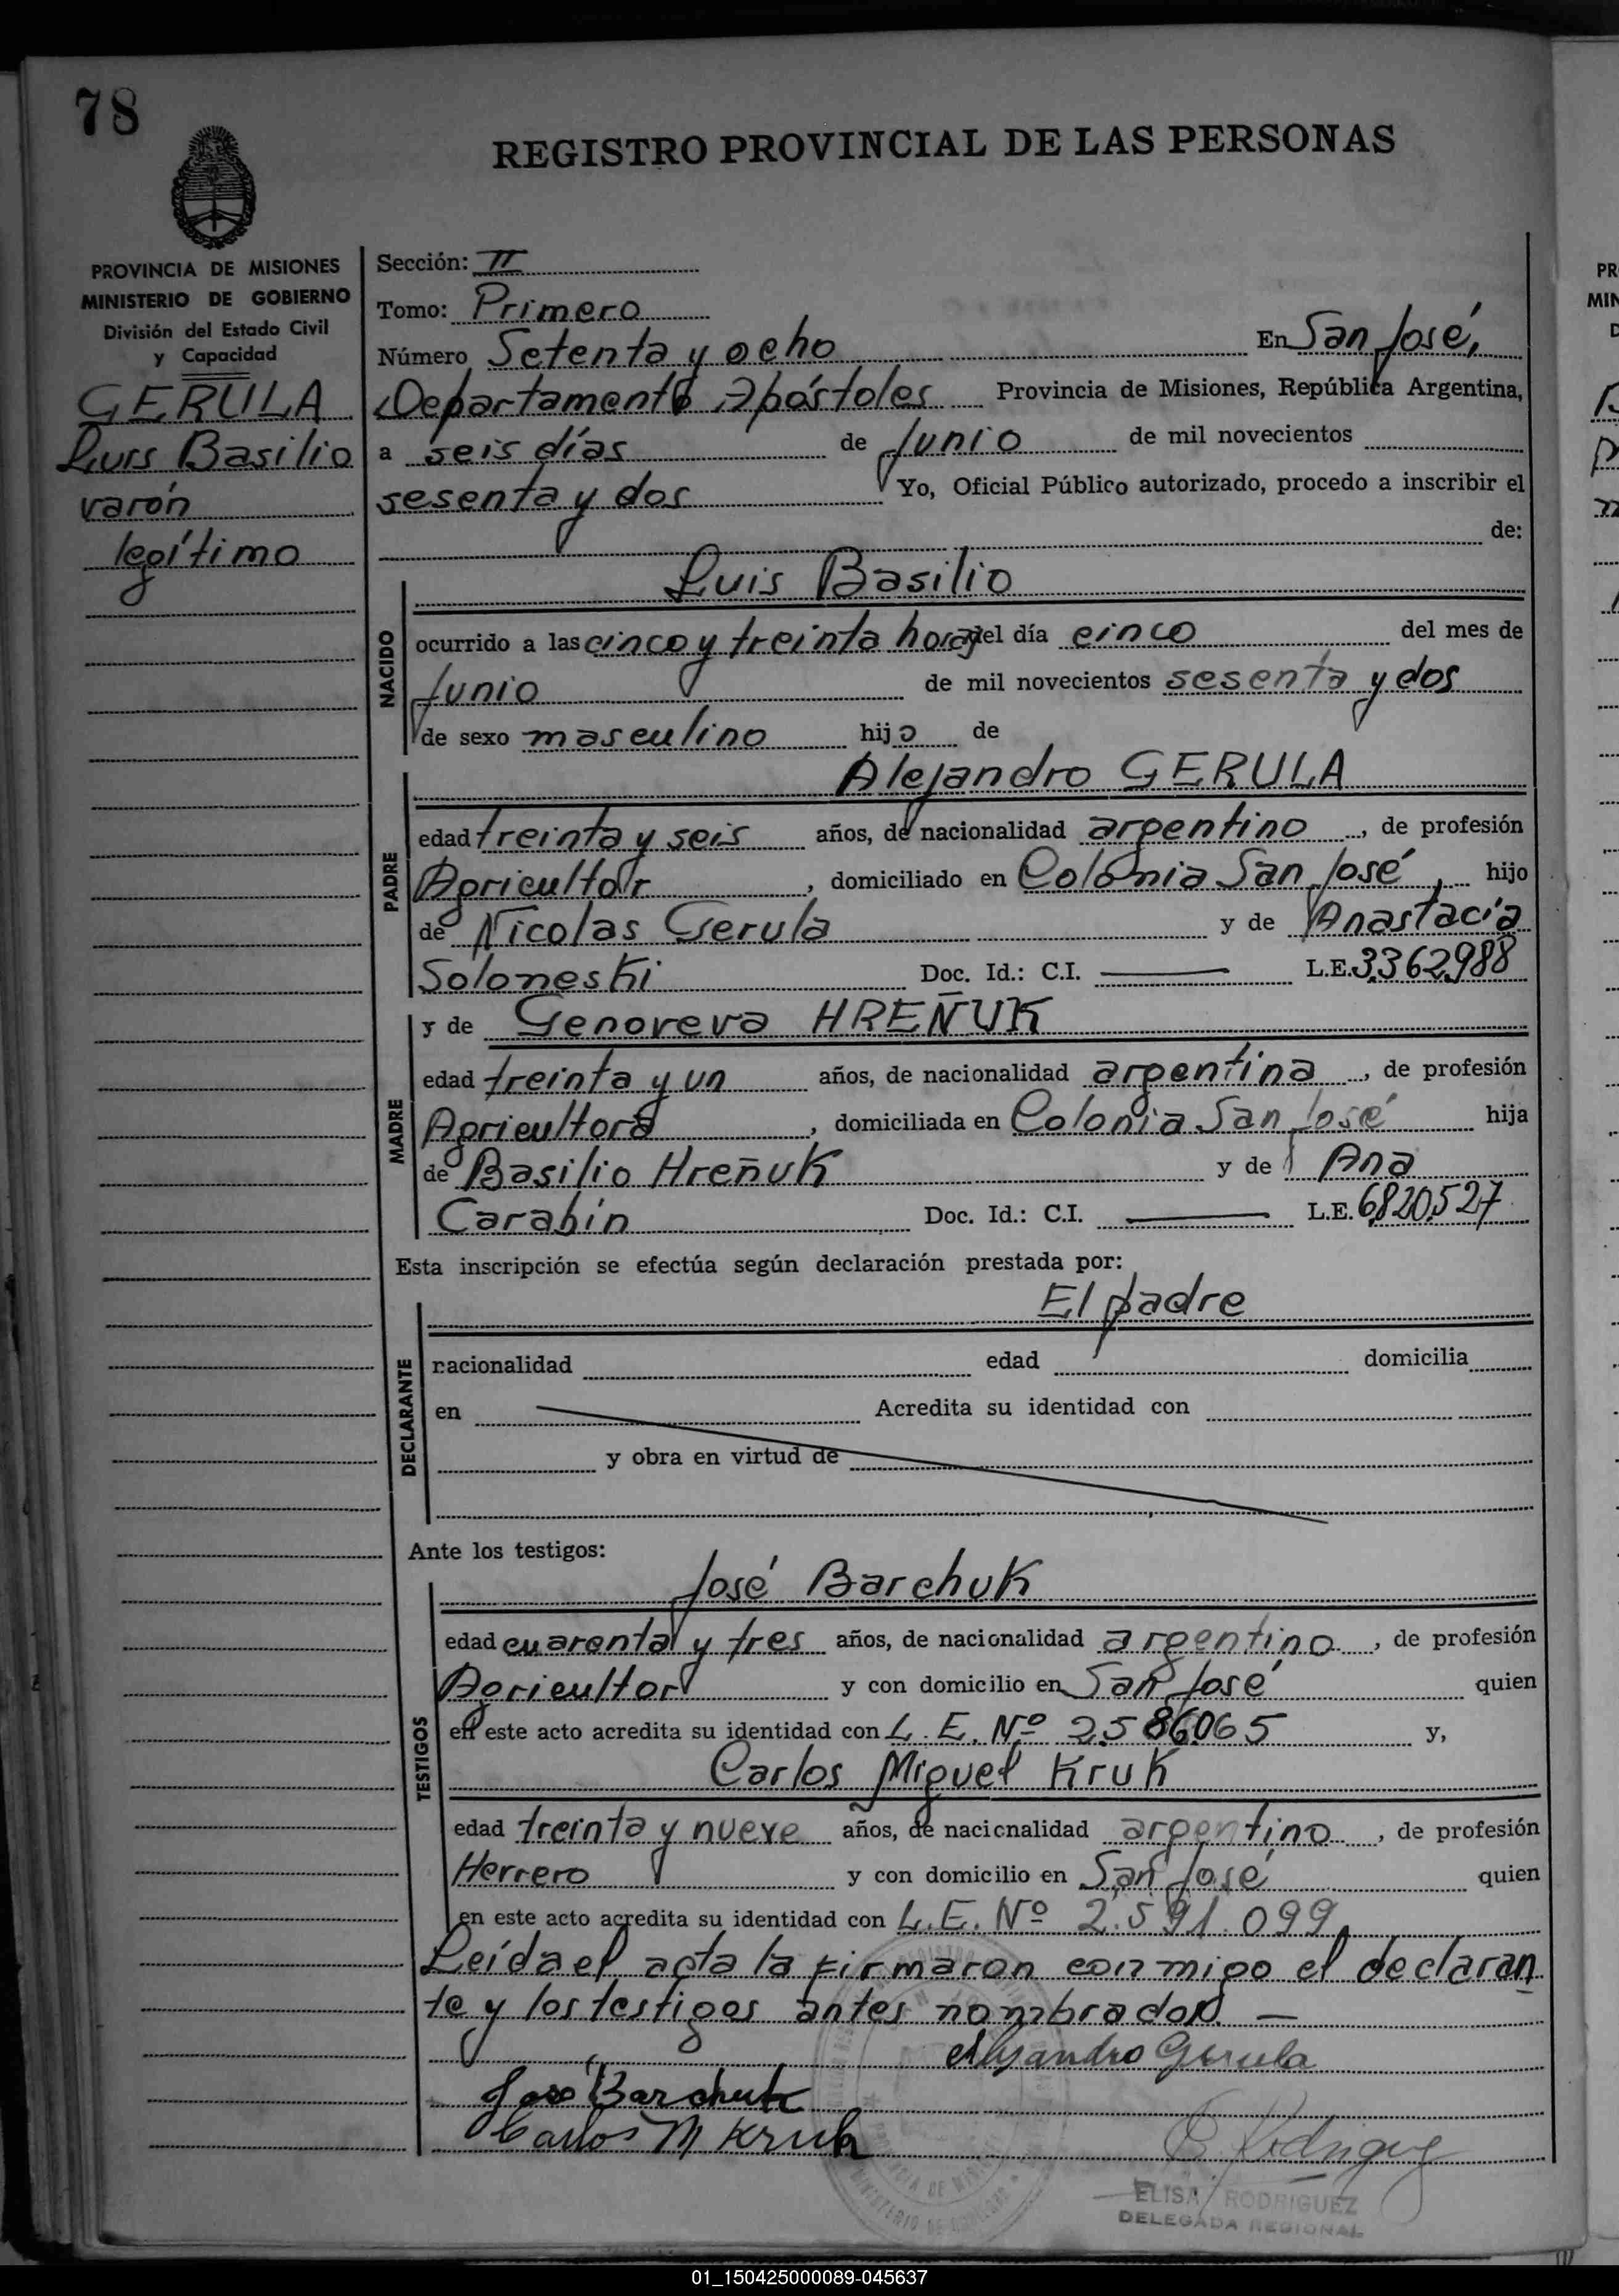 78
REGISTRO PROVINCIAL DE LAS PERSONAS
PROVINCIA DE MISIONES
MINISTERIO DE GOBIERNO
División del Estado Civil
y Capacidad
GERULA
Luis Basilio
varón
legítimo
Sección: II
Tomo: Primero
Número Setenta y ocho En San José,
Departamento Apóstoles Provincia de Misiones, República Argentina,
a seis días de Junio de mil novecientos
sesenta y dos Yo, Oficial Público autorizado, procedo a inscribir el
de:
Luis Basilio
NACIDO
ocurrido a las cinco y treinta horas del día cinco del mes de
Junio de mil novecientos sesenta y dos
de sexo masculino hijo de
Alejandro GERULA
PADRE
edad treinta y seis años, de nacionalidad argentino, de profesión
Agricultor, domiciliado en Colonia San José, hijo
de Nicolas Gerula y de Anastacia
Soloneski Doc. Id.: C.I. —— L.E. 3.362.988
y de Genoveva HREÑUK
MADRE
edad treinta y un años, de nacionalidad argentina, de profesión
Agricultora, domiciliada en Colonia San José hija
de Basilio Hreñuk y de Ana
Carabín Doc. Id.: C.I. —— L.E. 6.820.527
Esta inscripción se efectúa según declaración prestada por:
El padre
DECLARANTE
nacionalidad edad domicilia
en Acredita su identidad con
y obra en virtud de
Ante los testigos:
José Barchuk
TESTIGOS
edad cuarenta y tres años, de nacionalidad argentino, de profesión
Agricultor y con domicilio en San José quien
en este acto acredita su identidad con L.E. Nº 2.586.065 y,
Carlos Miguel Kruk
edad treinta y nueve años, de nacionalidad argentino, de profesión
Herrero y con domicilio en San José quien
en este acto acredita su identidad con L.E. Nº 2.591.099
Leída el acta la firmaron conmigo el declaran
te y los testigos antes nombrados. —
Alejandro Gerula
José Barchuk
Carlos M Kruk
E. Rodriguez
ELISA RODRIGUEZ
DELEGADA REGIONAL
PR
MIN
01_150425000089-045637